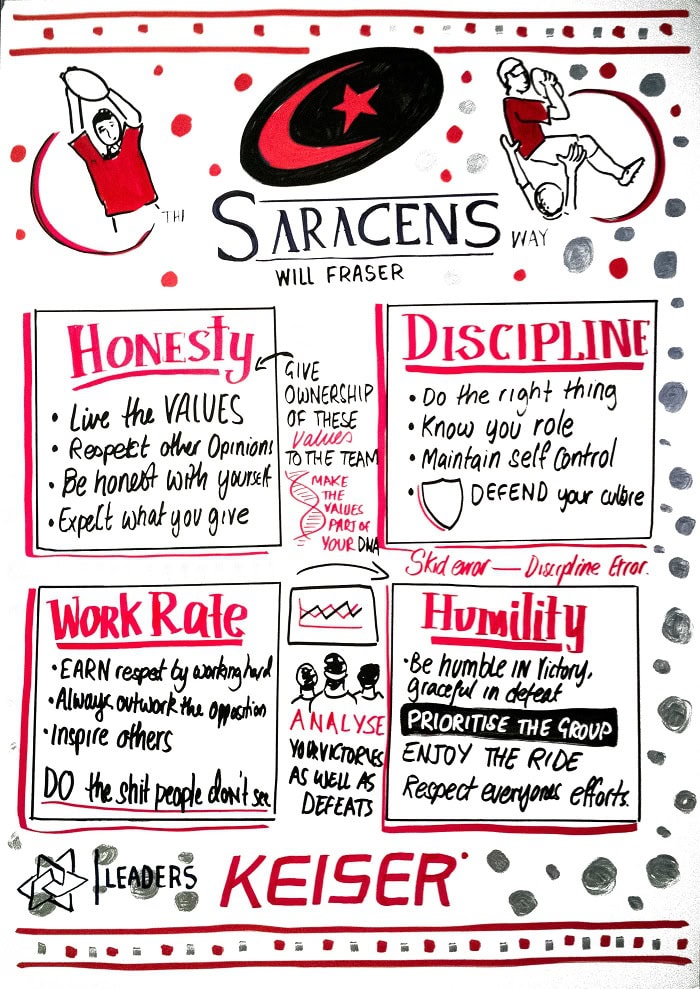 THE
SARACENS
WAY
WILL FRASER
HONESTY
• Live the VALUES
• Respect other Opinions
• Be honest with yourself
• Expect what you give
GIVE
OWNERSHIP
OF THESE
Values
TO THE TEAM
MAKE
THE
VALUES
PART OF
YOUR DNA
DISCIPLINE
• Do the right thing
• Know you role
• Maintain self control
• DEFEND your culture
error — Discipline Error.
WORK RATE
• EARN respect by working hard
• Always outwork the opposition
• Inspire others
DO the shit people don't see
ANALYSE
YOUR VICTORIES
AS WELL AS
DEFEATS
Humility
• Be humble in Victory,
graceful in defeat
PRIORITISE THE GROUP
ENJOY THE RIDE
Respect everyones efforts.
LEADERS
KEISER